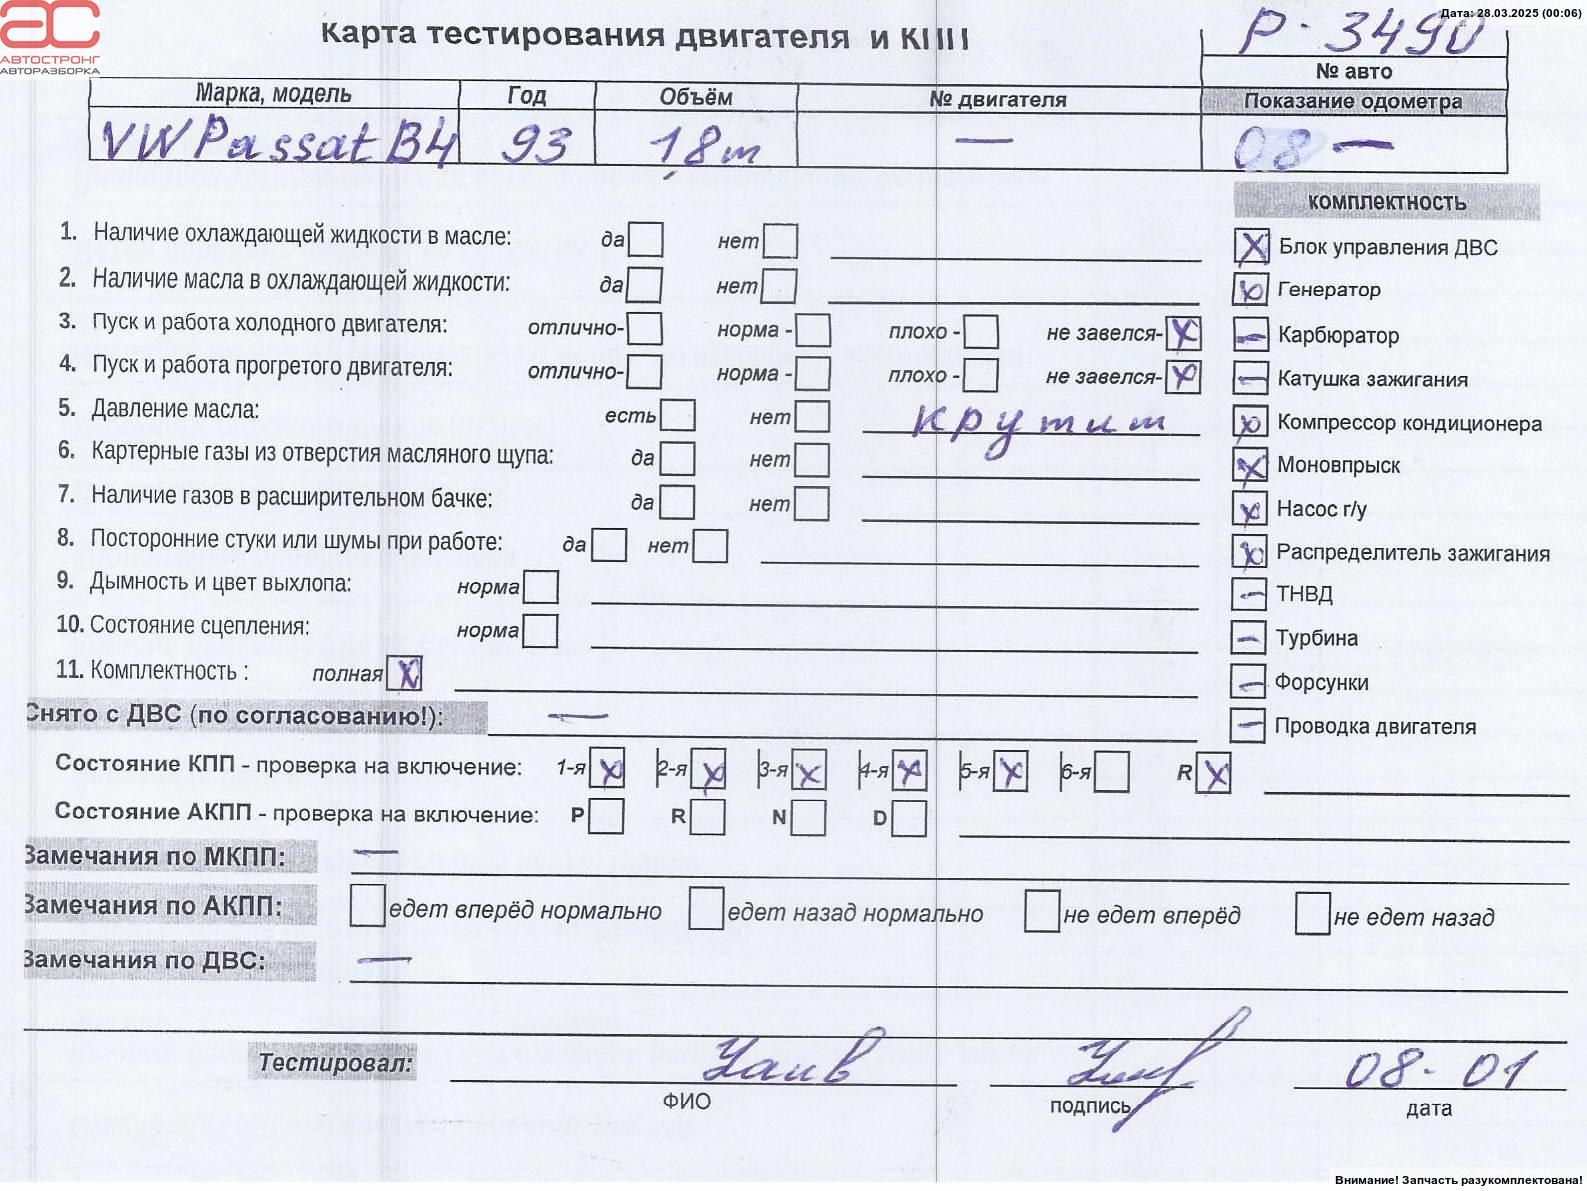 Дата: 28.03.2025 (00:06)
АС
АВТОСТРОНГ
АВТОРАЗБОРКА
Карта тестирования двигателя и КПП
Р-3490
№ авто
Марка, модель Год Объём № двигателя Показание одометра
VW Passat B4 93 1,8m — 08 —
комплектность
1. Наличие охлаждающей жидкости в масле: да нет
Блок управления ДВС
2. Наличие масла в охлаждающей жидкости: да нет
Генератор
3. Пуск и работа холодного двигателя: отлично- норма - плохо - не завелся-
Карбюратор
4. Пуск и работа прогретого двигателя: отлично- норма - плохо - не завелся-
Катушка зажигания
5. Давление масла: есть нет крутит
Компрессор кондиционера
6. Картерные газы из отверстия масляного щупа: да нет
Моновпрыск
7. Наличие газов в расширительном бачке: да нет
Насос г/у
8. Посторонние стуки или шумы при работе: да нет
Распределитель зажигания
9. Дымность и цвет выхлопа: норма
ТНВД
10. Состояние сцепления: норма
Турбина
11. Комплектность : полная
Форсунки
Снято с ДВС (по согласованию!): —
Проводка двигателя
Состояние КПП - проверка на включение: 1-я 2-я 3-я 4-я 5-я 6-я R
Состояние АКПП - проверка на включение: P R N D
Замечания по МКПП: —
Замечания по АКПП: едет вперёд нормально едет назад нормально не едет вперёд не едет назад
Замечания по ДВС: —
Тестировал: 08-01
ФИО подпись дата
Внимание! Запчасть разукомплектована!